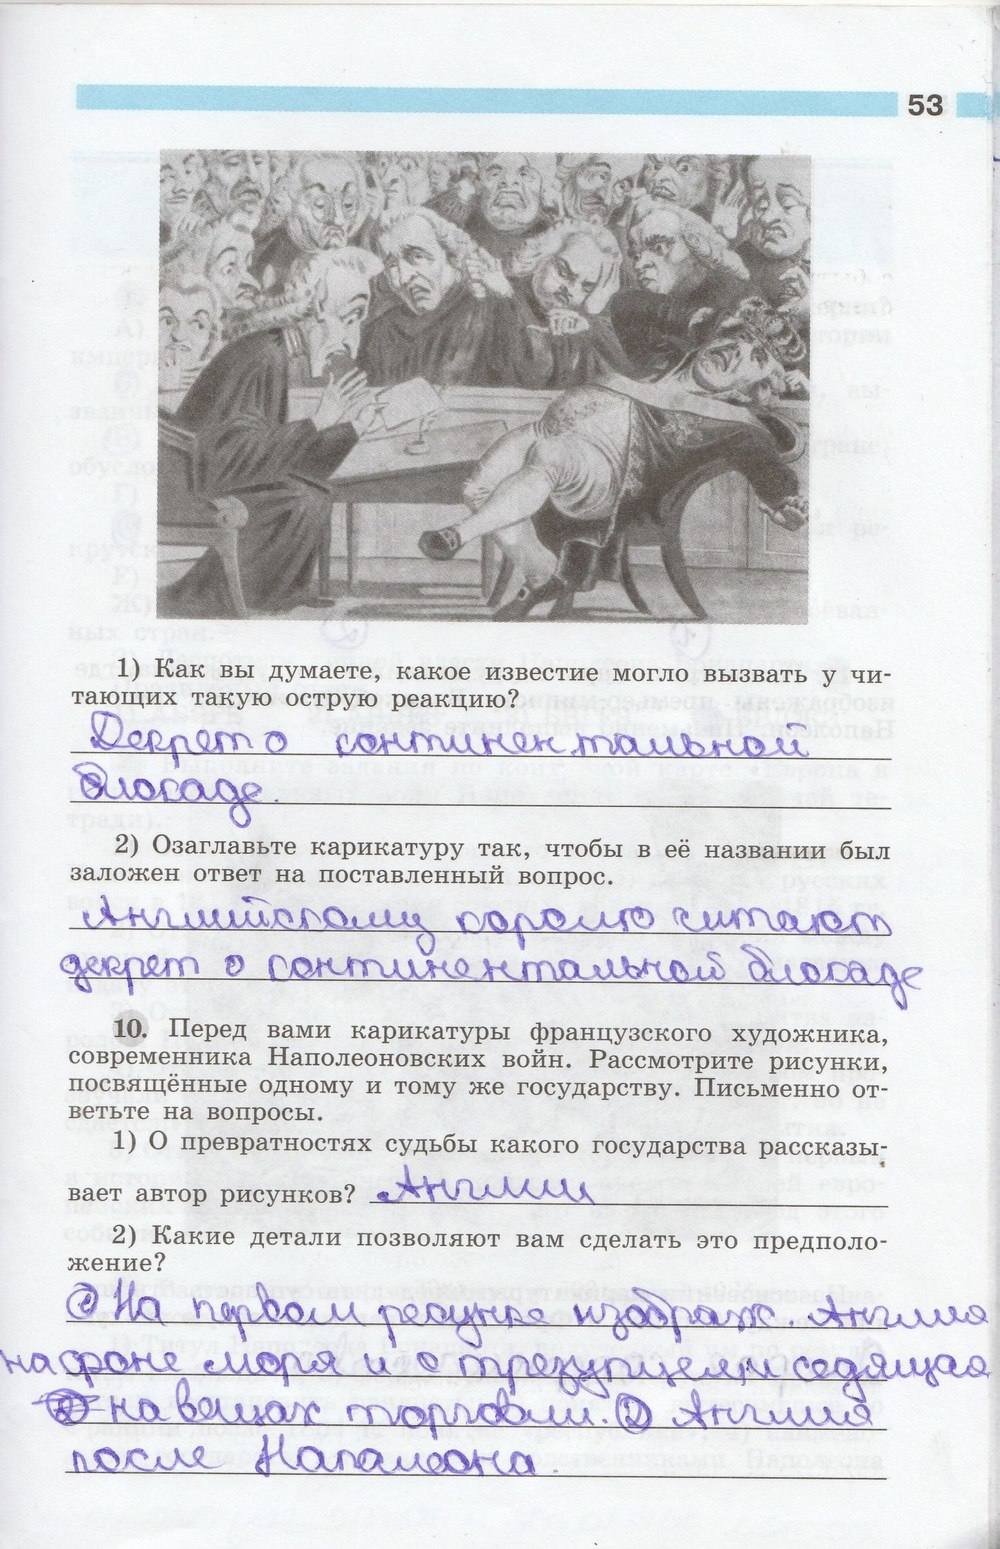 53
1) Как вы думаете, какое известие могло вызвать у чи-
тающих такую острую реакцию?
Декрет о континентальной
блокаде.
2) Озаглавьте карикатуру так, чтобы в её названии был
заложен ответ на поставленный вопрос.
Английскому королю читают
декрет о континентальной блокаде
10. Перед вами карикатуры французского художника,
современника Наполеоновских войн. Рассмотрите рисунки,
посвящённые одному и тому же государству. Письменно от-
ветьте на вопросы.
1) О превратностях судьбы какого государства рассказы-
вает автор рисунков? Англии
2) Какие детали позволяют вам сделать это предполо-
жение?
На первом ресунке изображ. Англия
на фоне моря и с трезупцем седящая
на вещах торговли. 2) Англия
после Напалеона.